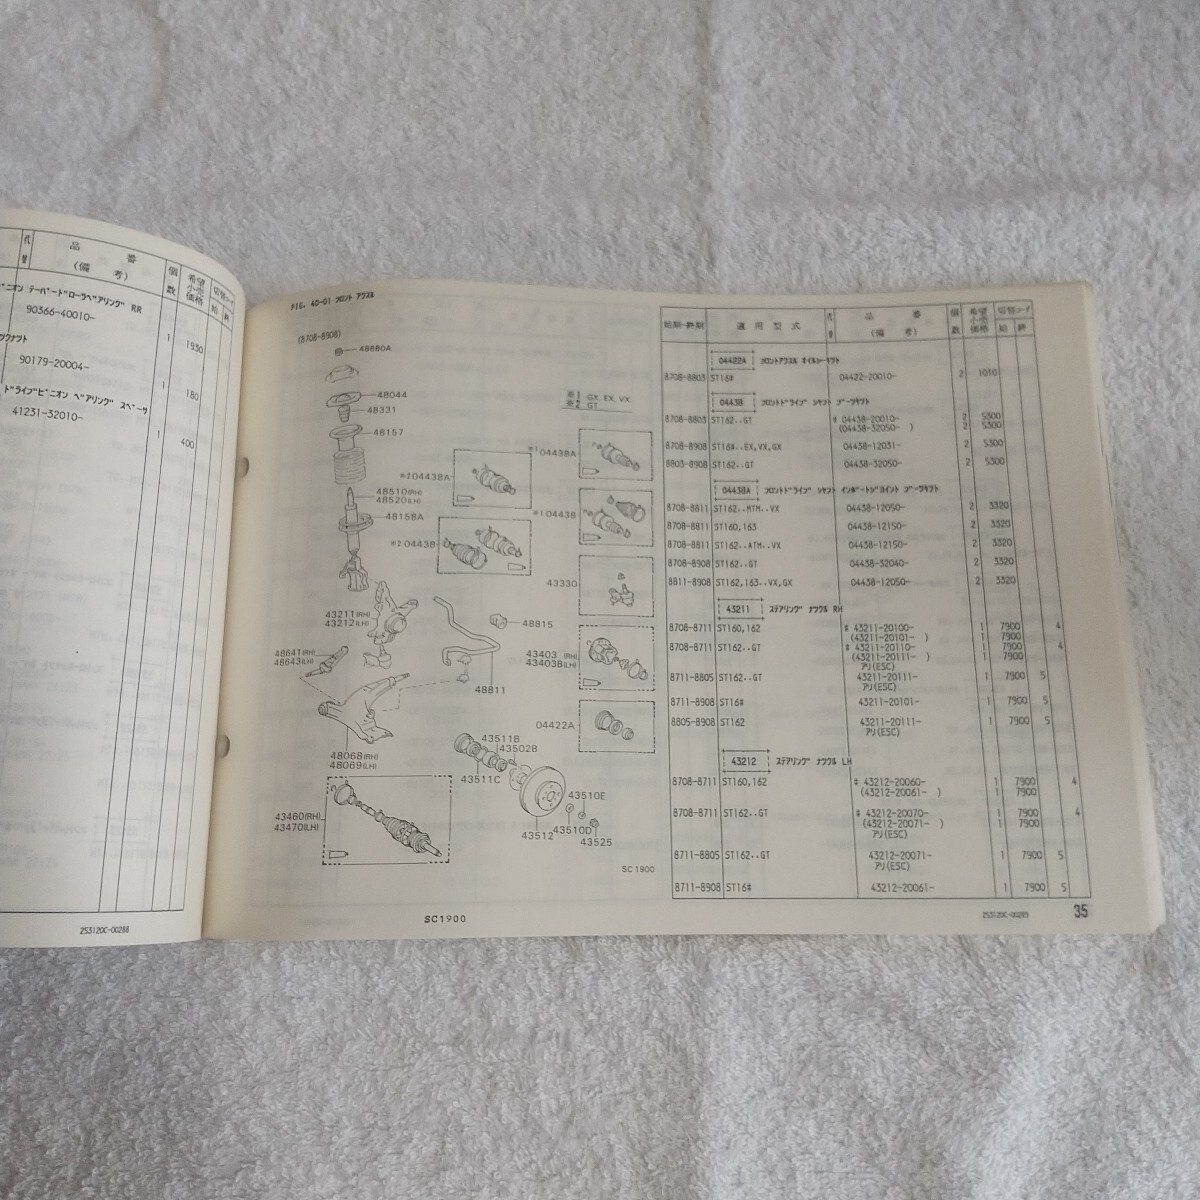 代替
品番
(備考)
個数
希望小売価格
切替コード
始 終
ﾋﾟﾆｵﾝ ﾃｰﾊﾟｰﾄﾞﾛｰﾗﾍﾞｱﾘﾝｸﾞ RR
90366-40010- 1 1950
ﾂｸﾅﾂﾄ
90179-20004- 1 180
ﾄﾞﾗｲﾌﾞﾋﾟﾆｵﾝ ﾍﾞｱﾘﾝｸﾞ ｽﾍﾟｰｻ
41231-32010- 1 400
253120C-00288
FIG. 40-01 ﾌﾛﾝﾄ ｱｸｽﾙ
(8708-8908)
48680A
48044
48331
48157
48510(RH)
48520(LH)
48158A
※1 GX, EX, VX
※2 GT
※1 04438A
※2 04438A
※1 04438
※2 04438
43330
43211(RH)
43212(LH)
48815
48641(RH)
48643(LH)
48811
43403 (RH)
43403B(LH)
04422A
48068(RH)
48069(LH)
43511B
43502B
43511C
43510E
43512
43510D
43525
43460(RH)
43470(LH)
SC1900
SC1900
始期-終期 適用型式 代替 品番 (備考) 個数 希望小売価格 切替コード 始 終
04422A ﾌﾛﾝﾄｱｸｽﾙ ｵｲﾙｼｰﾙｷﾂﾄ
8708-8803 ST16# 04422-20010- 2 1010
04438 ﾌﾛﾝﾄﾄﾞﾗｲﾌﾞ ｼﾔﾌﾄ ﾌﾞｰﾂｷﾂﾄ
8708-8803 ST162..GT # 04438-20010- 2 5300
(04438-32050- ) 2 5300
8708-8908 ST16#..EX,VX,GX 04438-12031- 2 5300
8803-8908 ST162..GT 04438-32050- 2 5300
04438A ﾌﾛﾝﾄﾄﾞﾗｲﾌﾞ ｼﾔﾌﾄ ｲﾝﾎﾞｰﾄﾞｼﾞﾖｲﾝﾄ ﾌﾞｰﾂｷﾂﾄ
8708-8811 ST162..MTM..VX 04438-12050- 2 3320
8708-8811 ST160,163 04438-12150- 2 3320
8708-8811 ST162..ATM..VX 04438-12150- 2 3320
8708-8908 ST162..GT 04438-32040- 2 3320
8811-8908 ST162,163..VX,GX 04438-12050- 2 3320
43211 ｽﾃｱﾘﾝｸﾞ ﾅﾂｸﾙ RH
8708-8711 ST160,162 # 43211-20100- 1 7900 4
(43211-20101- ) 1 7900
8708-8711 ST162..GT # 43211-20110- 1 7900 4
(43211-20111- ) 1 7900
ｱﾘ(ESC)
8711-8805 ST162..GT 43211-20111- 1 7900 5
ｱﾘ(ESC)
8711-8908 ST16# 43211-20101- 1 7900 5
8805-8908 ST162 43211-20111- 1 7900 5
ｱﾘ(ESC)
43212 ｽﾃｱﾘﾝｸﾞ ﾅﾂｸﾙ LH
8708-8711 ST160,162 # 43212-20060- 1 7900 4
(43212-20061- ) 1 7900
8708-8711 ST162..GT # 43212-20070- 1 7900 4
(43212-20071- ) 1 7900
ｱﾘ(ESC)
8711-8805 ST162..GT 43212-20071- 1 7900 5
ｱﾘ(ESC)
8711-8908 ST16# 43212-20061- 1 7900 5
253120C-00289
35